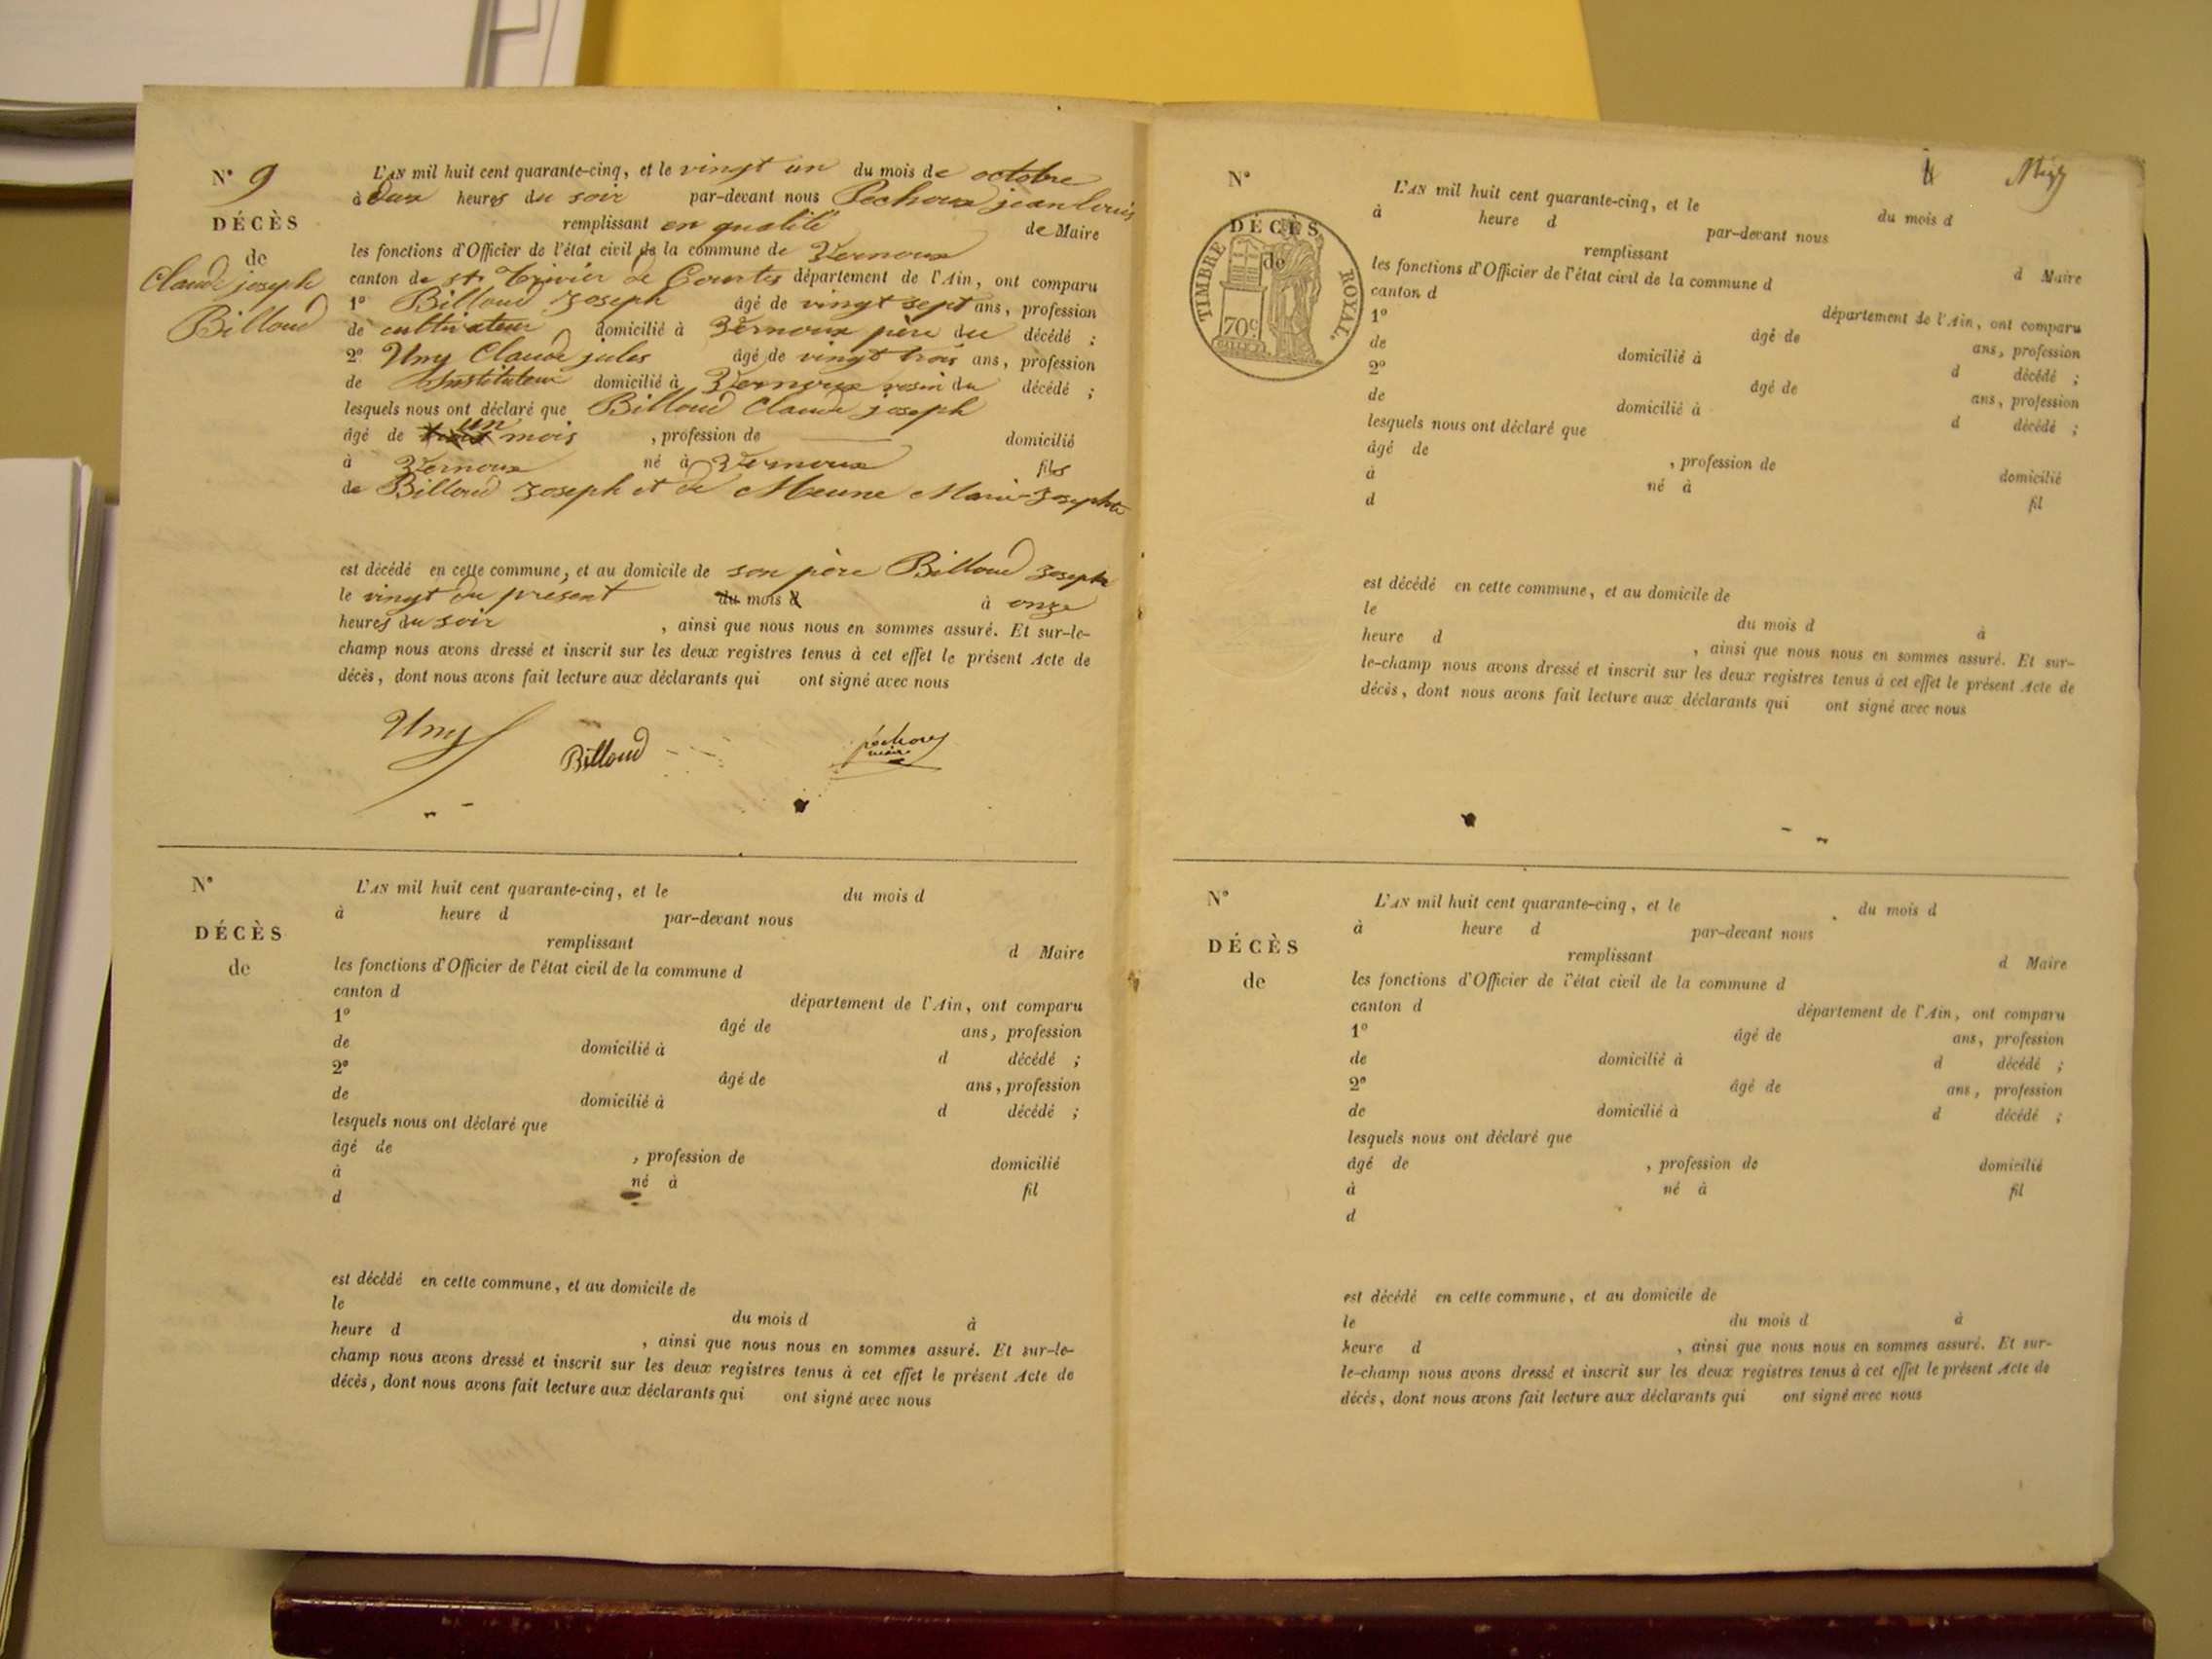 N° 9
DÉCÈS
de
Claude joseph
Billoud
L'AN mil huit cent quarante-cinq, et le vingt un du mois de octobre
à deux heures du soir par-devant nous Pechoux jean louis
remplissant en qualité de Maire
les fonctions d'Officier de l'état civil de la commune de Vernoux
canton de st Trivier de Courtes département de l'Ain, ont comparu
1° Billoud Joseph âgé de vingt sept ans, profession
de cultivateur domicilié à Vernoux père du décédé ;
2° Uny Claude jules âgé de vingt trois ans, profession
de Instituteur domicilié à Vernoux voisin du décédé ;
lesquels nous ont déclaré que Billoud Claude joseph
âgé de un mois , profession de domicilié
à Vernoux né à Vernoux fils
de Billoud Joseph et de Meune Marie-Josephte
est décédé en cette commune, et au domicile de son père Billoud Joseph
le vingt du présent du mois d à onze
heures du soir , ainsi que nous nous en sommes assuré. Et sur-le-
champ nous avons dressé et inscrit sur les deux registres tenus à cet effet le présent Acte de
décès, dont nous avons fait lecture aux déclarants qui ont signé avec nous
Uny Billoud pechoux
maire
N°
DÉCÈS
de
L'AN mil huit cent quarante-cinq, et le du mois d
à heure d par-devant nous
remplissant d Maire
les fonctions d'Officier de l'état civil de la commune d
canton d département de l'Ain, ont comparu
1° âgé de ans, profession
de domicilié à d décédé ;
2° âgé de ans, profession
de domicilié à d décédé ;
lesquels nous ont déclaré que
âgé de , profession de domicilié
à né à fil
d
est décédé en cette commune, et au domicile de
le du mois d à
heure d , ainsi que nous nous en sommes assuré. Et sur-le-
champ nous avons dressé et inscrit sur les deux registres tenus à cet effet le présent Acte de
décès, dont nous avons fait lecture aux déclarants qui ont signé avec nous
N°
DÉCÈS
de
TIMBRE ROYAL.
70c
L'AN mil huit cent quarante-cinq, et le du mois d
à heure d par-devant nous
remplissant d Maire
les fonctions d'Officier de l'état civil de la commune d
canton d département de l'Ain, ont comparu
1° âgé de ans, profession
de domicilié à d décédé ;
2° âgé de ans, profession
de domicilié à d décédé ;
lesquels nous ont déclaré que
âgé de , profession de domicilié
à né à fil
d
est décédé en cette commune, et au domicile de
le du mois d à
heure d , ainsi que nous nous en sommes assuré. Et sur-
le-champ nous avons dressé et inscrit sur les deux registres tenus à cet effet le présent Acte de
décès, dont nous avons fait lecture aux déclarants qui ont signé avec nous
N°
DÉCÈS
de
L'AN mil huit cent quarante-cinq, et le du mois d
à heure d par-devant nous
remplissant d Maire
les fonctions d'Officier de l'état civil de la commune d
canton d département de l'Ain, ont comparu
1° âgé de ans, profession
de domicilié à d décédé ;
2° âgé de ans, profession
de domicilié à d décédé ;
lesquels nous ont déclaré que
âgé de , profession de domicilié
à né à fil
d
est décédé en cette commune, et au domicile de
le du mois d à
heure d , ainsi que nous nous en sommes assuré. Et sur-
le-champ nous avons dressé et inscrit sur les deux registres tenus à cet effet le présent Acte de
décès, dont nous avons fait lecture aux déclarants qui ont signé avec nous